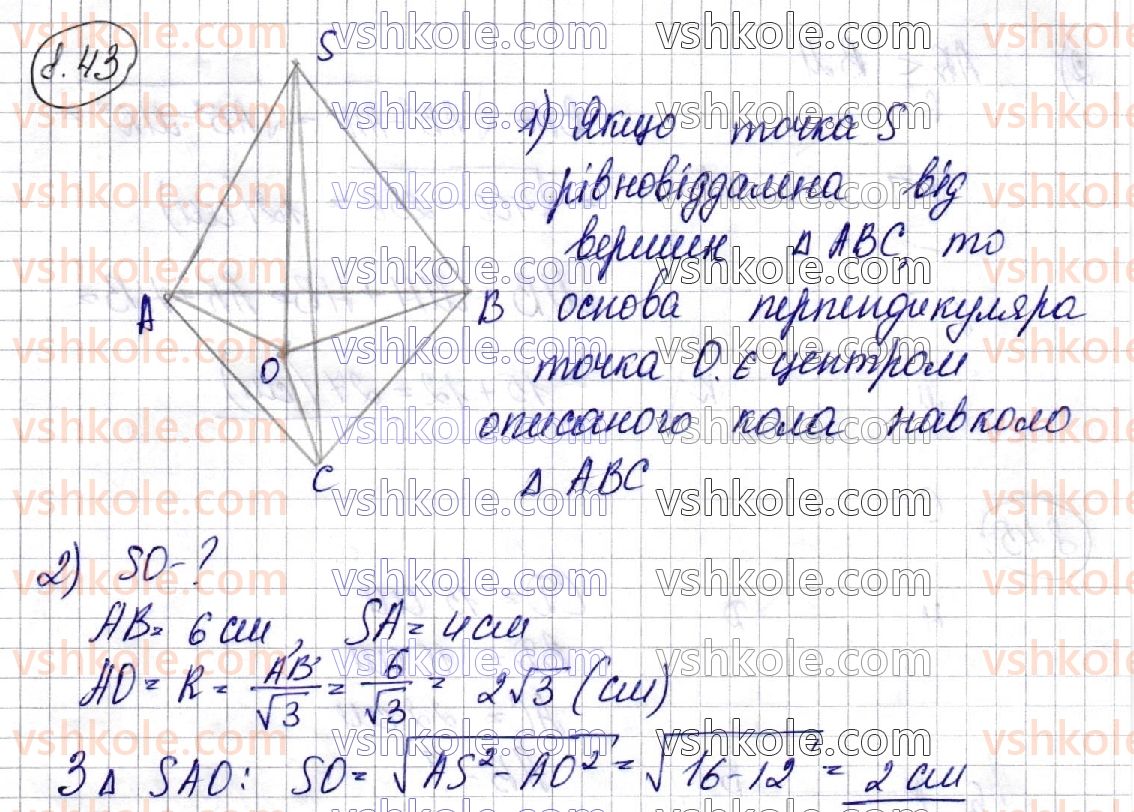 8.43
S
A
B
O
C
1) Якщо точка S
рівновіддалена від
вершин Δ ABC, то
основа перпендикуляра
точка O є центром
описаного кола навколо
Δ ABC
2) SO-?
AB = 6 см, SA = 4 см
AO = R = AB/√3 = 6/√3 = 2√3 (см)
З Δ SAO: SO = √(AS² - AO²) = √(16-12) = 2 см
vshkole.com